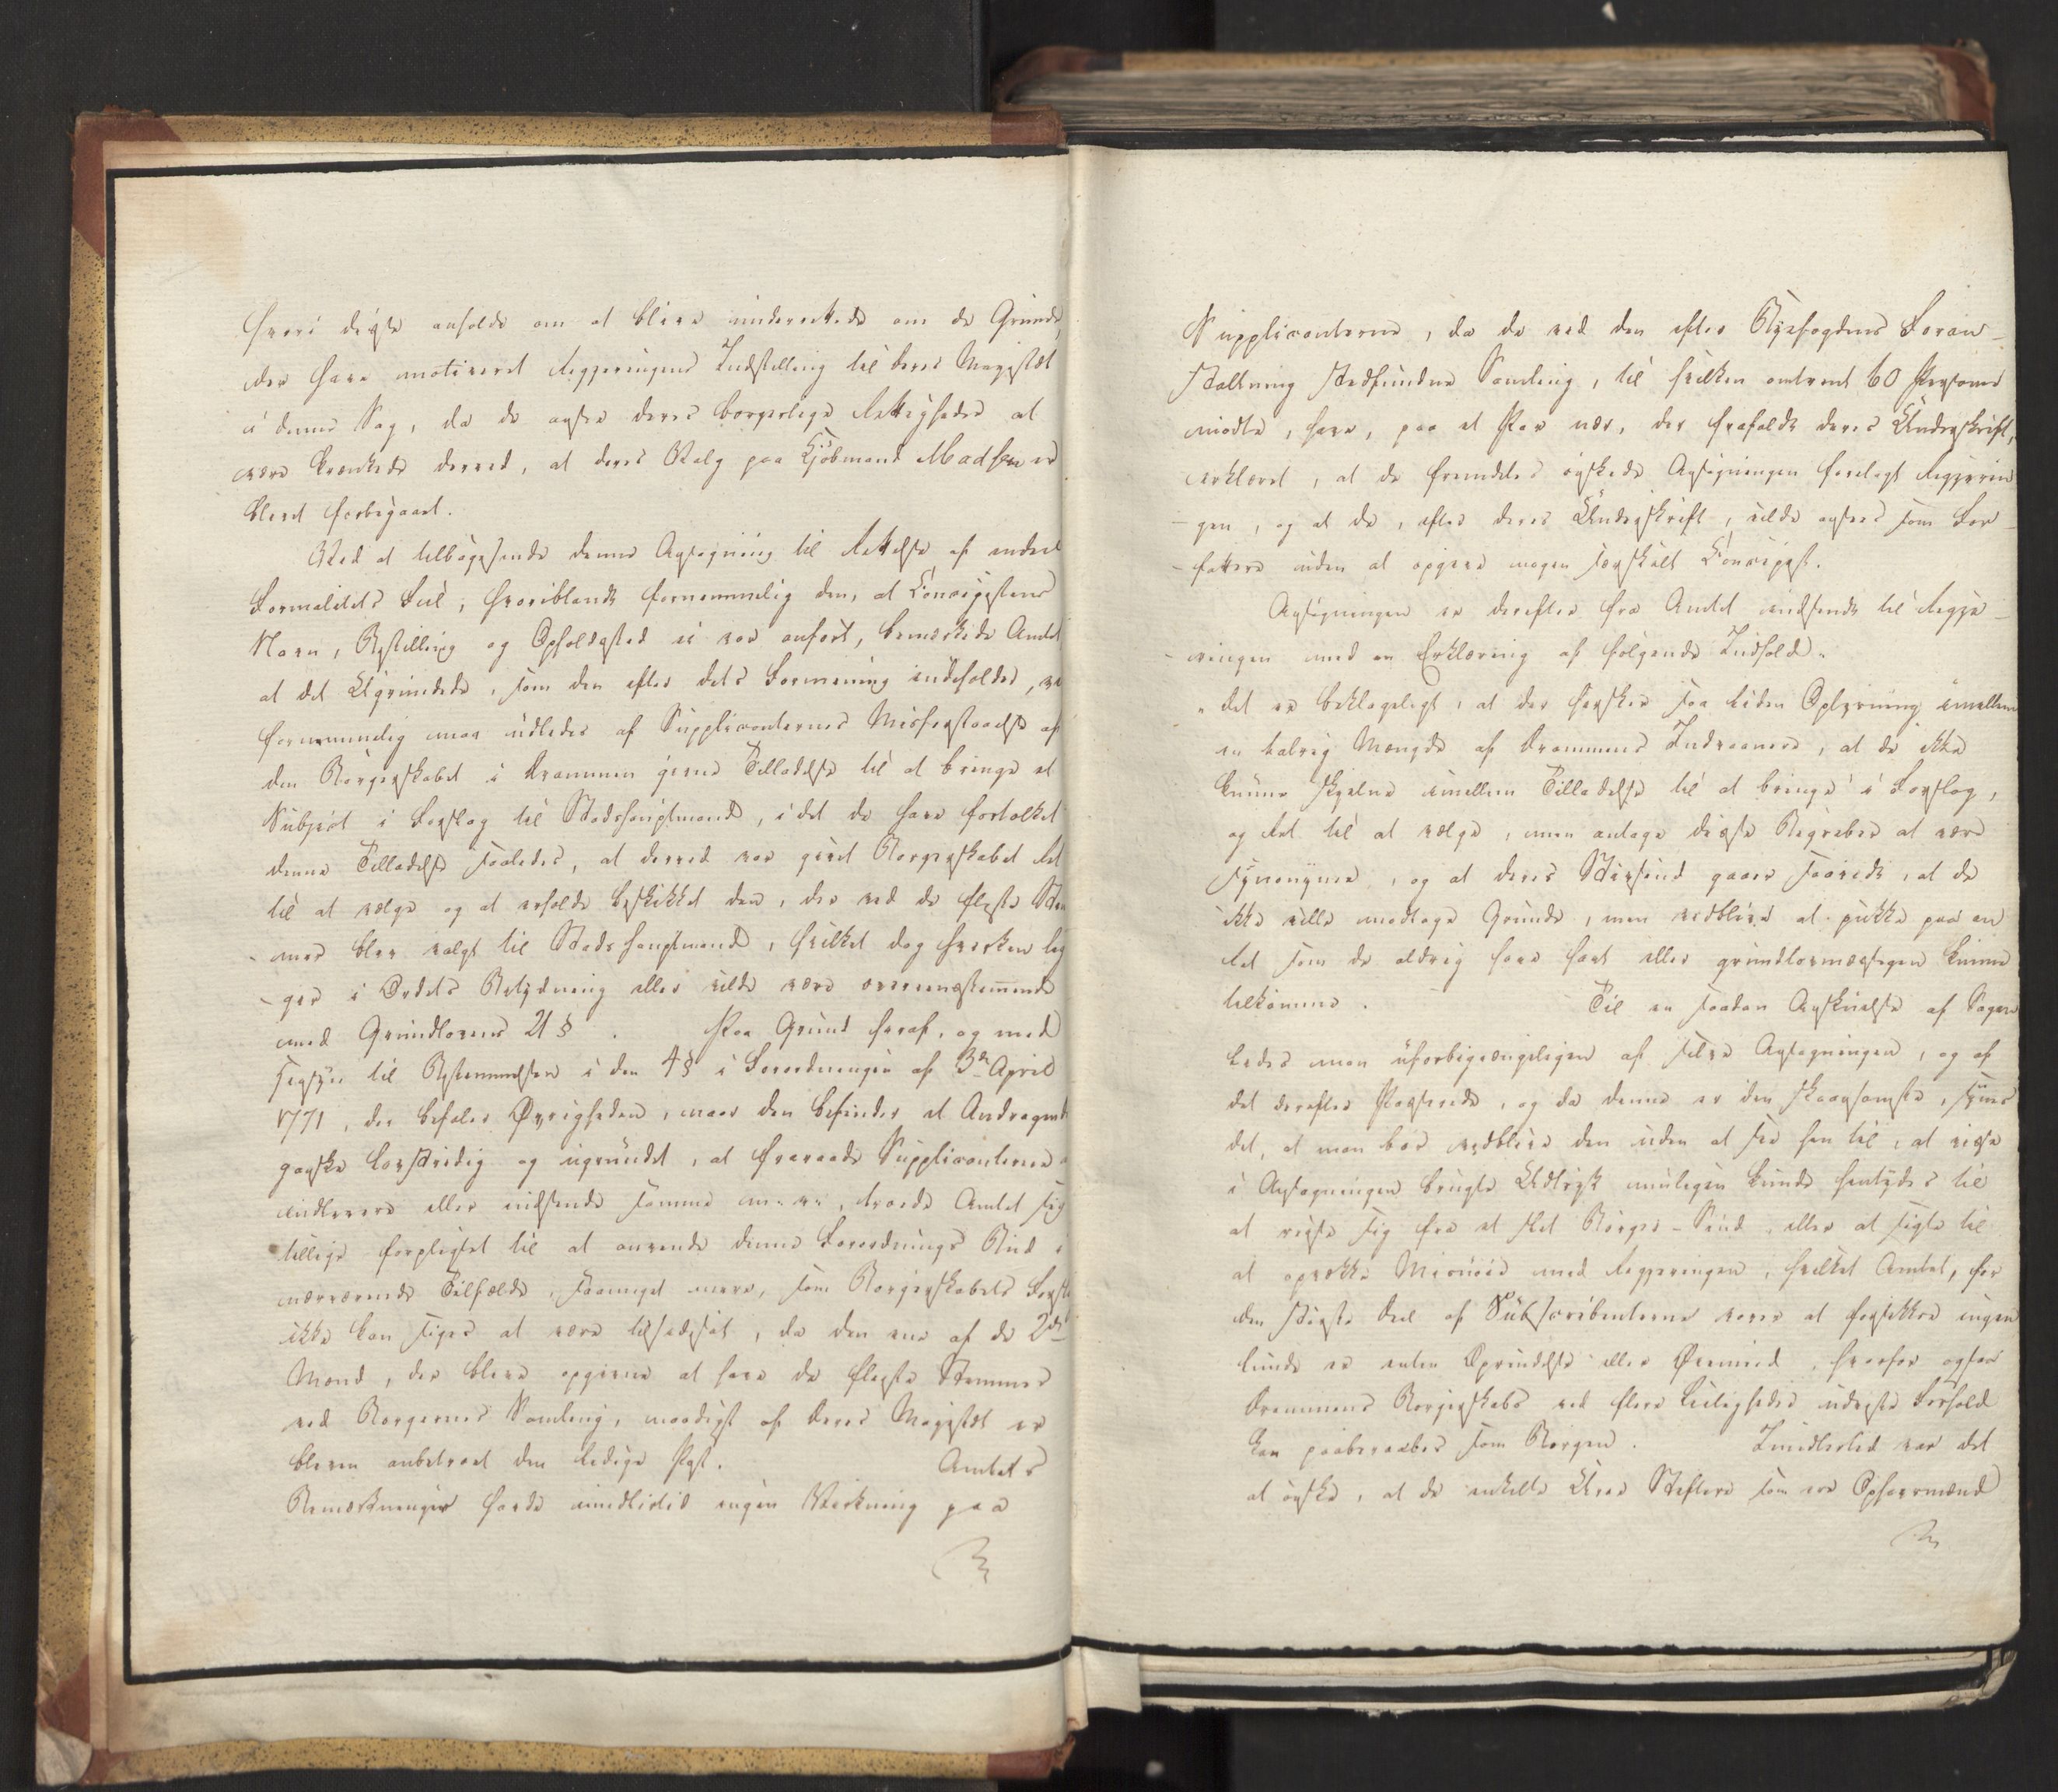 hvori disse anholde om at blive underrettede om de Grunde,
der have motiveret Regjeringens Indstilling til Deres Majestæt
i denne Sag, da de ansee deres borgerlige Rettigheder at
være krænkede derved, at deres Valg paa Kjøbmand Madsen er
blevet forbigaaet.
Ved at tilbagesende denne Ansøgning til Rettelse af endeel
Formalitets Feil, hvoriblandt fornemmelig den, at Concipistens
Navn, Bestilling og Opholdssted ei var anført, bemærkede Amtet
at det Ugrundede, som den efter dets Formening indeholder,
fornemmelig maa udledes af Supplicanternes Misforstaaelse af
den Borgerskabet i Drammen givne Tilladelse til at bringe et
Subject i Forslag til Stadshauptmand, idet de have fortolket
denne Tilladelse saaledes, at derved var givet Borgerskabet Ret
til at vælge og at erholde beskikket den, der ved de fleste Stem
mer blev valgt til Stadshauptmand, hvilket dog hverken lig
ger i Ordets Betydning eller vilde være overeensstemmende
med Grundlovens 21 § . Paa Grund heraf, og med
Hensyn til Bestemmelsen i den 4 § i Forordningen af 3de April
1771, der befaler Øvrigheden, naar den befinder et Andragende
ganske lovstridig og ugrundet, at fraraade Supplicanterne
indlevere eller indsende samme m: v:, troede Amtet sig
tillige forpligtet til at anvende denne Forordnings Bud i
nærværende Tilfælde, saameget mere, som Borgerskabets Forslag
ikke kan siges at være tilsidesat, da den ene af de 2de
Mænd, der bleve opgivne at have de fleste Stemmer
ved Borgernes Samling, naadigst af Deres Majestæt er
bleven anbetroet den ledige Post. Amtets
Bemærkninger havde imidlertid ingen Virkning paa
Supplicanterne, da de ved den efter Byefogdens Foran-
staltning stedfundne Samling, til hvilken omtrent 60 Personer
mødte, have, paa et Par nær, der frafaldt deres Underskrift,
erklæret, at de fremdeles ønskede Ansøgningen forelagt Regjerin
gen, og at de, efter deres Underskrift, vilde ansees som For-
fattere uden at opgive nogen særskilt Concipist.
Ansøgningen er derefter fra Amtet indsendt til Regje-
ringen med en Erklæring af følgende Indhold:
"det er beklageligt, at der hersker saa liden Oplysning imellem
en talrig Mængde af Drammens Indvaanere, at de ikke
kunne skjelne imellem Tilladelse til at bringe i Forslag,
og Ret til at vælge, men antage disse Begreber at være
synonyme, og at deres Stivsind gaaer saavidt, at de
ikke ville modtage Grunde, men vedblive at pukke paa en
Ret som de aldrig have havt eller grundlovmæssigen kunne
tilkomme. Til en saadan Anskuelse af Sagen
ledes man uforbigjængeligen af selve Ansøgningen, og af
det derefter Passerede, og da denne er den skaansomste, synes
det, at man bør vedblive den uden at see hen til, at visse
i Ansøgningen brugte Udtryk muligen kunde hentyde til
at reise sig fra et slet Borger-Sind, eller at sigte til
at opvække Misnøie med Regjeringen, hvilket Amtet, for
den største Deel af Subscribenterne vover at forsikkre ingen
lunde er enten Oprindelse eller Øiemed, hvorfor ogsaa
Drammens Borgerskabs ved flere Leiligheder udviste Forhold
kan paaberaabes som Borgen. Imidlertid var det
at ønske, at de enkelte Uroe Stiftere som ere Ophavsmænd